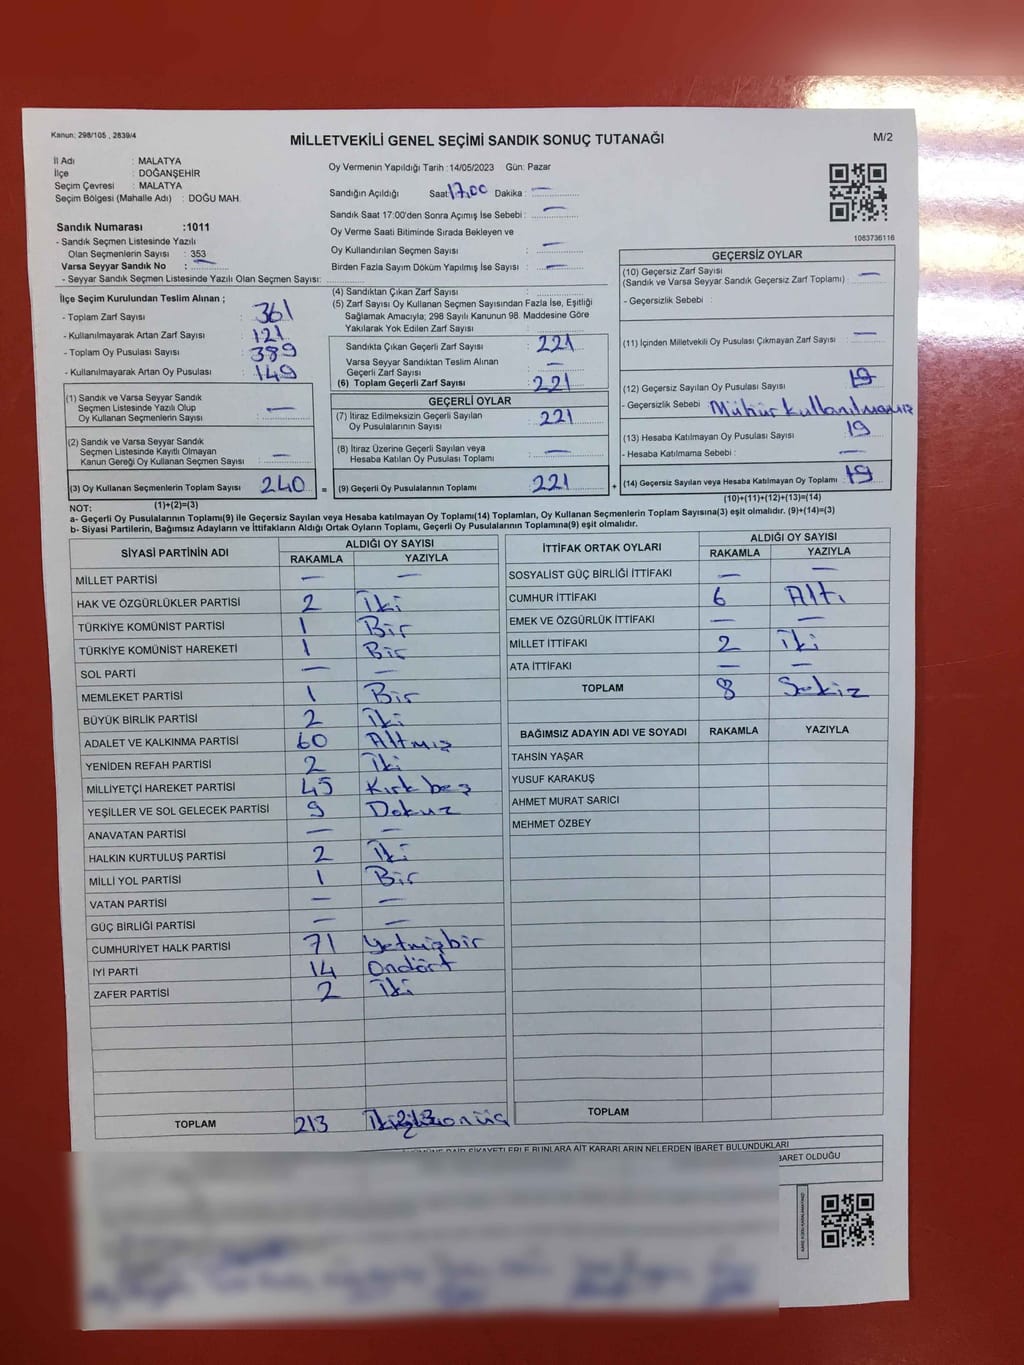 Kanun: 298/105 , 2839/4
MİLLETVEKİLİ GENEL SEÇİMİ SANDIK SONUÇ TUTANAĞI
M/2
İl Adı : MALATYA
İlçe : DOĞANŞEHİR
Seçim Çevresi : MALATYA
Seçim Bölgesi (Mahalle Adı) : DOĞU MAH.
Sandık Numarası :1011
- Sandık Seçmen Listesinde Yazılı
Olan Seçmenlerin Sayısı : 353
Varsa Seyyar Sandık No : —
- Seyyar Sandık Seçmen Listesinde Yazılı Olan Seçmen Sayısı:
Oy Vermenin Yapıldığı Tarih :14/05/2023 Gün: Pazar
Sandığın Açıldığı Saat 17.00 Dakika : —
Sandık Saat 17:00'den Sonra Açımış İse Sebebi : —
Oy Verme Saati Bitiminde Sırada Bekleyen ve
Oy Kullandırılan Seçmen Sayısı : —
Birden Fazla Sayım Döküm Yapılmış İse Sayısı : —
1083736116
İlçe Seçim Kurulundan Teslim Alınan ;
- Toplam Zarf Sayısı : 361
- Kullanılmayarak Artan Zarf Sayısı : 121
- Toplam Oy Pusulası Sayısı : 389
- Kullanılmayarak Artan Oy Pusulası : 149
(1) Sandık ve Varsa Seyyar Sandık
Seçmen Listesinde Yazılı Olup
Oy Kullanan Seçmenlerin Sayısı : —
(2) Sandık ve Varsa Seyyar Sandık
Seçmen Listesinde Kayıtlı Olmayan
Kanun Gereği Oy Kullanan Seçmen Sayısı : —
(3) Oy Kullanan Seçmenlerin Toplam Sayısı : 240 =
(1)+(2)=(3)
(4) Sandıktan Çıkan Zarf Sayısı :
(5) Zarf Sayısı Oy Kullanan Seçmen Sayısından Fazla İse, Eşitliği
Sağlamak Amacıyla; 298 Sayılı Kanunun 98. Maddesine Göre
Yakılarak Yok Edilen Zarf Sayısı :
Sandıkta Çıkan Geçerli Zarf Sayısı : 221
Varsa Seyyar Sandıktan Teslim Alınan
Geçerli Zarf Sayısı : —
(6) Toplam Geçerli Zarf Sayısı : 221
GEÇERLİ OYLAR
(7) İtiraz Edilmeksizin Geçerli Sayılan
Oy Pusulalarının Sayısı : 221
(8) İtiraz Üzerine Geçerli Sayılan veya
Hesaba Katılan Oy Pusulası Toplamı : —
(9) Geçerli Oy Pusulalarının Toplamı : 221 +
GEÇERSİZ OYLAR
(10) Geçersiz Zarf Sayısı
(Sandık ve Varsa Seyyar Sandık Geçersiz Zarf Toplamı) : —
- Geçersizlik Sebebi :
(11) İçinden Milletvekili Oy Pusulası Çıkmayan Zarf Sayısı : —
(12) Geçersiz Sayılan Oy Pusulası Sayısı : 19
- Geçersizlik Sebebi : Mühür kullanılmamış
(13) Hesaba Katılmayan Oy Pusulası Sayısı : 19
- Hesaba Katılmama Sebebi : —
(14) Geçersiz Sayılan veya Hesaba Katılmayan Oy Toplamı : 19
(10)+(11)+(12)+(13)=(14)
NOT:
a- Geçerli Oy Pusulalarının Toplamı(9) ile Geçersiz Sayılan veya Hesaba katılmayan Oy Toplamı(14) Toplamları, Oy Kullanan Seçmenlerin Toplam Sayısına(3) eşit olmalıdır. (9)+(14)=(3)
b- Siyasi Partilerin, Bağımsız Adayların ve İttifakların Aldığı Ortak Oyların Toplamı, Geçerli Oy Pusulalarının Toplamına(9) eşit olmalıdır.
SİYASİ PARTİNİN ADI ALDIĞI OY SAYISI
RAKAMLA YAZIYLA
MİLLET PARTİSİ — —
HAK VE ÖZGÜRLÜKLER PARTİSİ 2 İki
TÜRKİYE KOMÜNİST PARTİSİ 1 Bir
TÜRKİYE KOMÜNİST HAREKETİ 1 Bir
SOL PARTİ — —
MEMLEKET PARTİSİ 1 Bir
BÜYÜK BİRLİK PARTİSİ 2 İki
ADALET VE KALKINMA PARTİSİ 60 Altmış
YENİDEN REFAH PARTİSİ 2 İki
MİLLİYETÇİ HAREKET PARTİSİ 45 Kırk beş
YEŞİLLER VE SOL GELECEK PARTİSİ 9 Dokuz
ANAVATAN PARTİSİ — —
HALKIN KURTULUŞ PARTİSİ 2 İki
MİLLİ YOL PARTİSİ 1 Bir
VATAN PARTİSİ — —
GÜÇ BİRLİĞİ PARTİSİ — —
CUMHURİYET HALK PARTİSİ 71 Yetmişbir
İYİ PARTİ 14 Ondört
ZAFER PARTİSİ 2 İki
TOPLAM 213
İTTİFAK ORTAK OYLARI ALDIĞI OY SAYISI
RAKAMLA YAZIYLA
SOSYALİST GÜÇ BİRLİĞİ İTTİFAKI — —
CUMHUR İTTİFAKI 6 Altı
EMEK VE ÖZGÜRLÜK İTTİFAKI — —
MİLLET İTTİFAKI 2 İki
ATA İTTİFAKI — —
TOPLAM 8 Sekiz
BAĞIMSIZ ADAYIN ADI VE SOYADI RAKAMLA YAZIYLA
TAHSİN YAŞAR
YUSUF KARAKUŞ
AHMET MURAT SARICI
MEHMET ÖZBEY
TOPLAM
ŞİKAYETLERLE BUNLARA AİT KARARLARIN NELERDEN İBARET BULUNDUKLARI
BARET OLDUĞU